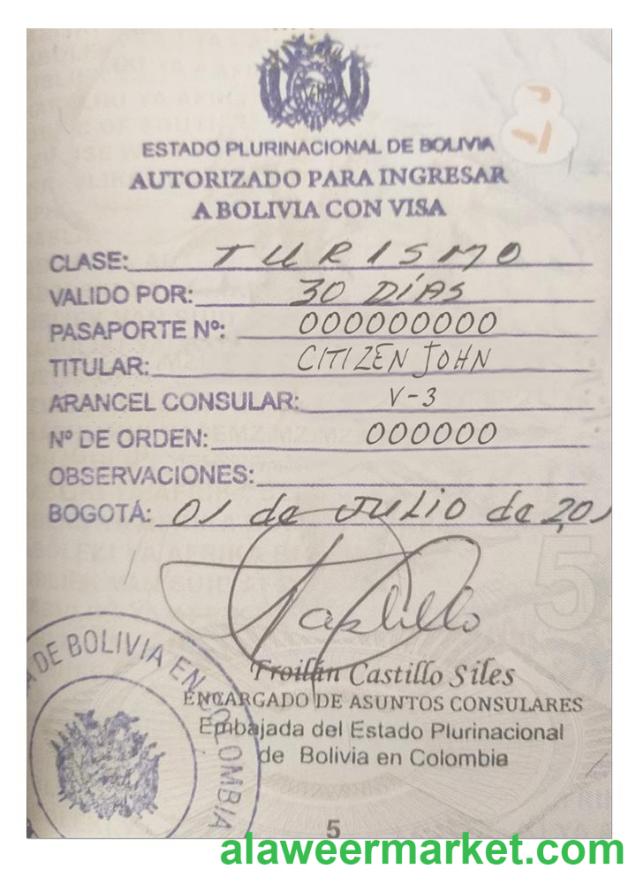 ESTADO PLURINACIONAL DE BOLIVIA
AUTORIZADO PARA INGRESAR
A BOLIVIA CON VISA
CLASE: TURISMO
VALIDO POR: 30 DÍAS
PASAPORTE Nº: 000000000
TITULAR: CITIZEN JOHN
ARANCEL CONSULAR: V-3
Nº DE ORDEN: 000000
OBSERVACIONES:
BOGOTÁ: 01 de JULIO de 201
Castillo
Troilán Castillo Siles
ENCARGADO DE ASUNTOS CONSULARES
Embajada del Estado Plurinacional
de Bolivia en Colombia
DE BOLIVIA EN COLOMBIA
5
5
alaweermarket.com